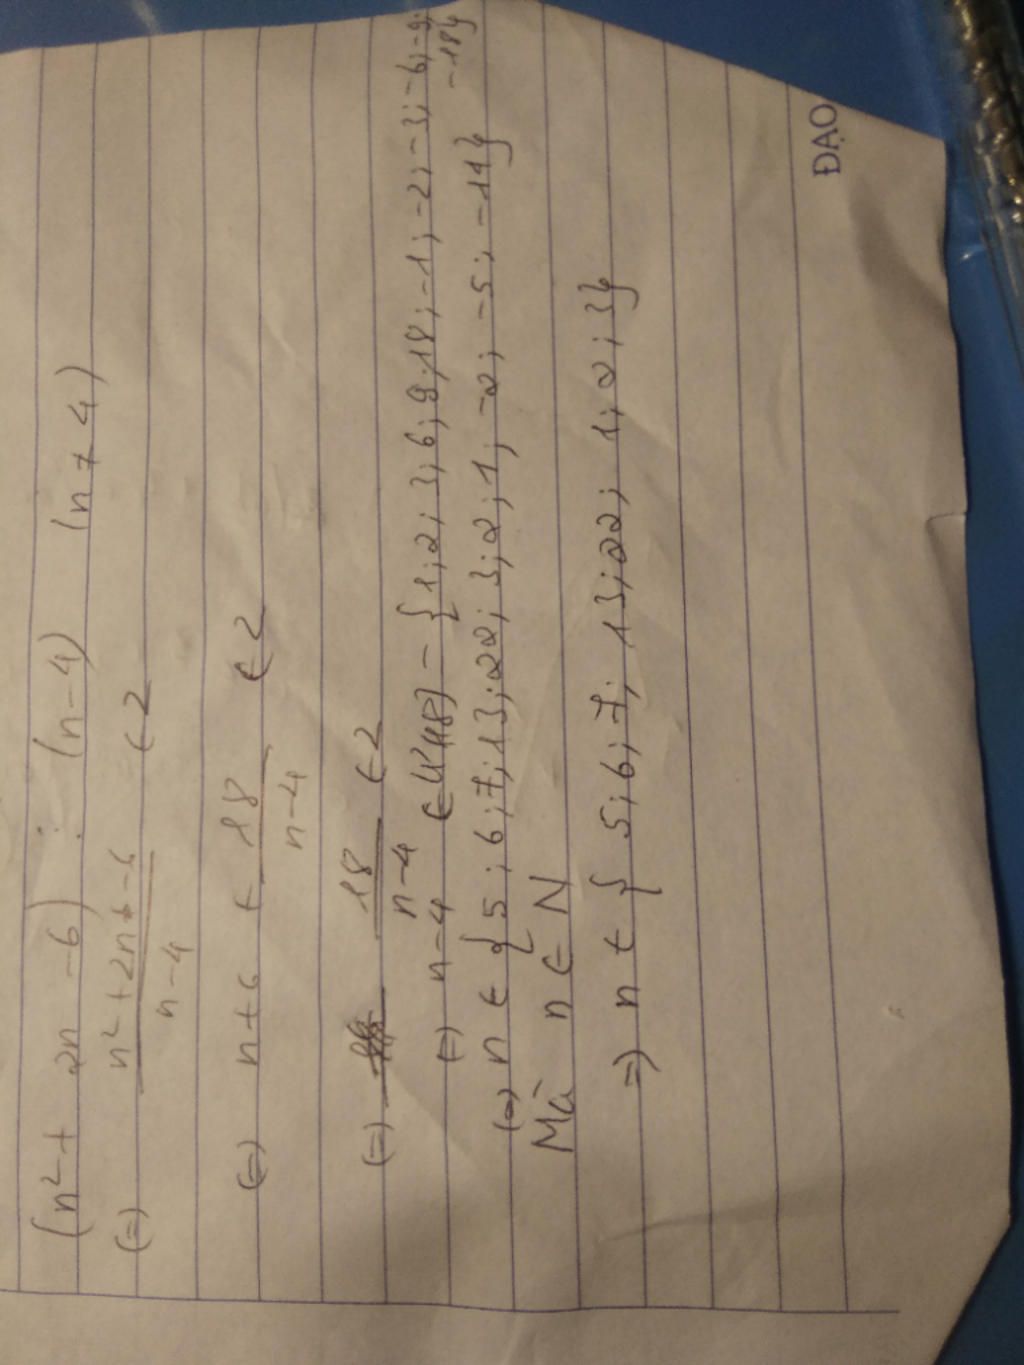 (n² + 2n - 6) ⋮ (n - 4) (n ≠ 4)
(=) n² + 2n - 6 / n - 4 ∈ Z
(=) n + 6 + 18 / n - 4 ∈ Z
(=) 18 / n - 4 ∈ Z
(=) n - 4 ∈ Ư(18) = {1; 2; 3; 6; 9; 18; -1; -2; -3; -6; -9; -18}
(=) n ∈ {5; 6; 7; 13; 22; 3; 2; 1; -2; -5; -14}
Mà n ∈ N
=) n ∈ {5; 6; 7; 13; 22; 1; 2; 3}
ĐẠO